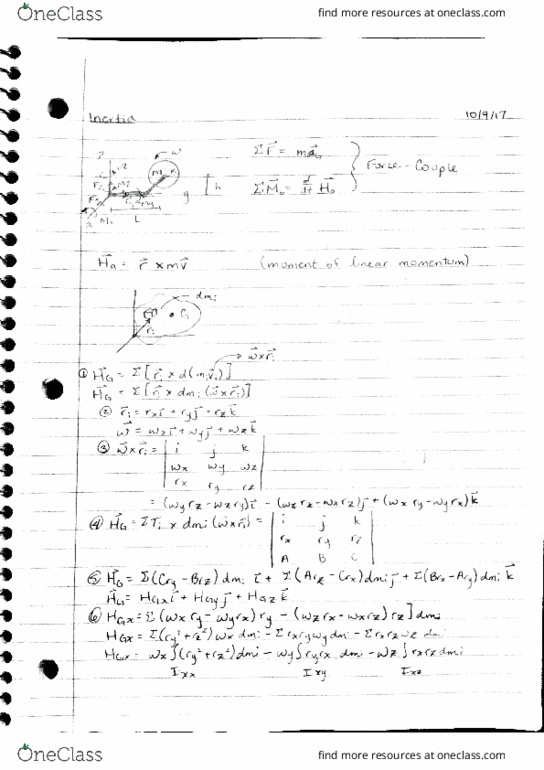 OneClass
find more resources at oneclass.com
Inertia
10/9/17
ΣF⃗ = ma⃗G
ΣM⃗o = d/dt H⃗o
Force - Couple
h
L
H⃗a = r⃗ × mv⃗ (moment of linear momentum)
dmi
G
ri
① H⃗G = Σ[r⃗i × d(miv⃗i)] ω⃗×r⃗i
H⃗G = Σ[r⃗i × dmi (ω⃗×r⃗i)]
② r⃗i = rxi⃗ + ryj⃗ + rzk⃗
ω⃗ = ωxi⃗ + ωyj⃗ + ωzk⃗
③ ω⃗×r⃗i = | i j k |
ωx ωy ωz
rx ry rz
= (ωyrz - ωzry)i⃗ - (ωzrx - ωxrz)j⃗ + (ωxry - ωyrx)k⃗
④ H⃗G = Σr⃗i × dmi (ω×r⃗i) = | i j k |
rx ry rz
A B C
⑤ H⃗G = Σ(Cry - Brz)dmi i⃗ + Σ(Arz - Crx)dmi j⃗ + Σ(Brx - Ary)dmi k⃗
H⃗G = HGxi⃗ + HGyj⃗ + HGzk⃗
⑥ HGx = Σ(ωxry - ωyrx)ry - (ωzrx - ωxrz)rz]dmi
HGx = Σ(ry² + rz²)ωx dmi - Σrxryωydmi - Σrxrzωz dmi
HGx = ωx∫(ry² + rz²)dmi - ωy∫ryrx dmi - ωz∫rxrzdmi
Ixx Ixy Ixz
OneClass
find more resources at oneclass.com